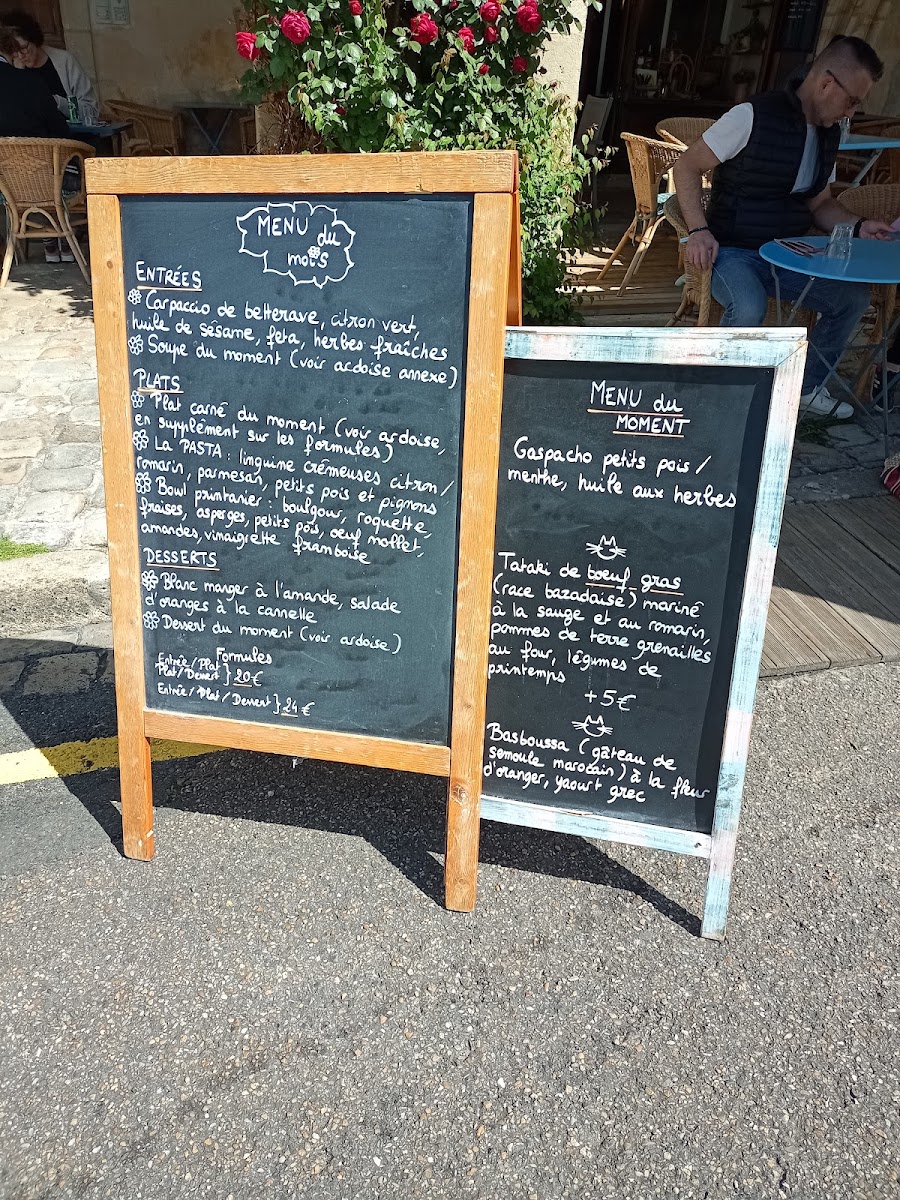 MENU du
mois
ENTRÉES
Carpaccio de betterave, citron vert,
huile de sésame, feta, herbes fraîches
Soupe du moment (voir ardoise annexe)
PLATS
Plat carné du moment (voir ardoise,
en supplément sur les formules)
La PASTA : linguine crémeuses citron/
romarin, parmesan, petits pois et pignons
Bowl printanier : boulgour, roquette,
fraises, asperges, petits pois, oeuf mollet,
amandes, vinaigrette framboise
DESSERTS
Blanc manger à l'amande, salade
d'oranges à la cannelle
Dessert du moment (voir ardoise)
Formules
Entrée/Plat
Plat/Dessert } 20€
Entrée/Plat/Dessert } 24€
MENU du
MOMENT
Gaspacho petits pois/
menthe, huile aux herbes
Tataki de boeuf gras
(race bazadaise) mariné
à la sauge et au romarin,
pommes de terre grenailles
au four, légumes de
printemps
+5€
Basboussa (gâteau de
semoule marocain) à la fleur
d'oranger, yaourt grec